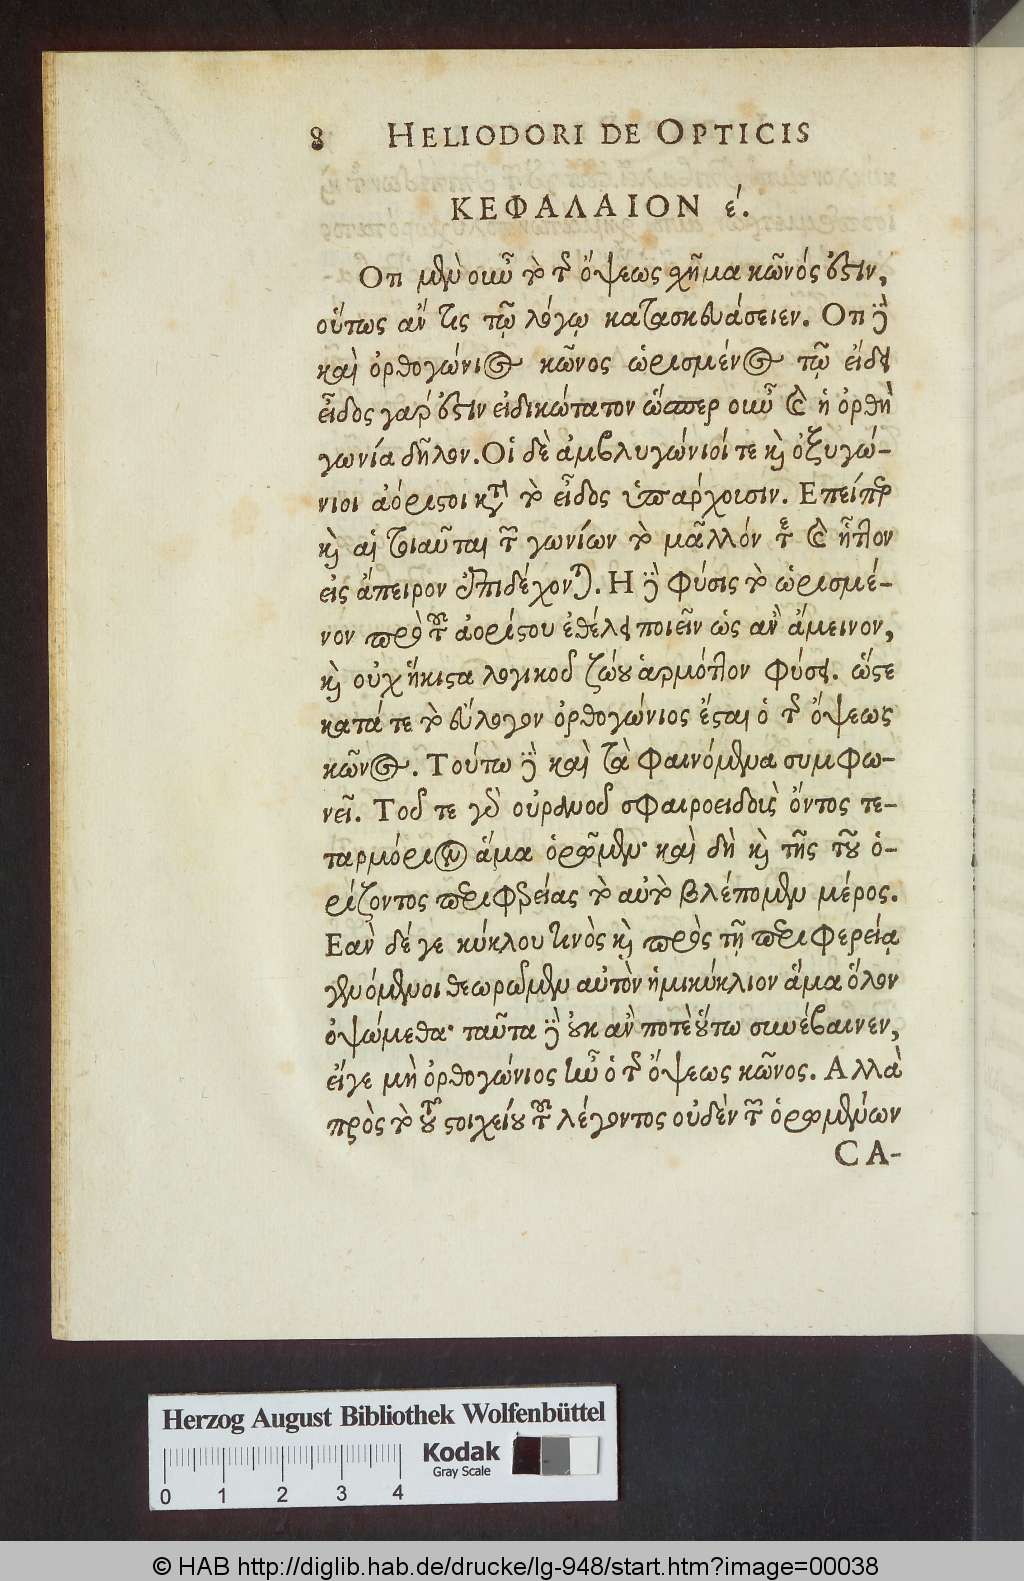 8 HELIODORI DE OPTICIS
ΚΕΦΑΛΑΙΟΝ έ.
Οτι μὲν οὖν τὸ τῆς ὄψεως σχῆμα κῶνός ἐστιν,
οὕτως ἄν τις τῷ λόγῳ κατασκευάσειεν. Οτι δὲ
καὶ ὀρθογώνιος κῶνος ὡρισμένος τῷ εἴδει
εἶδος γάρ ἐστιν εἰδικώτατον ὥσπερ οὖν καὶ ἡ ὀρθὴ
γωνία δῆλον. Οἱ δὲ ἀμβλυγώνιοί τε καὶ ὀξυγώ-
νιοι ἀόριστοι κατὰ τὸ εἶδος ὑπάρχουσιν. Επείπερ
καὶ αἱ τοιαῦται τῶν γωνίων τὸ μᾶλλόν τε καὶ ἧττον
εἰς ἄπειρον ἐπιδέχονται. Η δὲ φύσις τὸ ὡρισμέ-
νον πρὸ τοῦ ἀορίστου ἐθέλει ποιεῖν ὡς ἂν ἄμεινον,
καὶ οὐχ ἥκιστα λογικοῦ ζώου ἁρμόττον φύσει. ὥστε
κατά τε τὸ εὔλογον ὀρθογώνιος ἔσται ὁ τῆς ὄψεως
κῶνος. Τούτῳ δὲ καὶ τὰ φαινόμενα συμφω-
νεῖ. Τοῦ τε γὰρ οὐρανοῦ σφαιροειδοῦς ὄντος τε-
ταρμόριον ἅμα ὁρῶμεν· καὶ δὴ καὶ τῆς τοῦ ὁ-
ρίζοντος περιφερείας τὸ αὐτὸ βλέπομεν μέρος.
Εαν δέ γε κύκλου τινὸς καὶ πρὸς τῇ περιφερείᾳ
γενόμενοι θεωρῶμεν αὐτὸν ἡμικύκλιον ἅμα ὅλον
ὀψώμεθα· ταῦτα δὲ οὐκ ἂν ποτὲ οὕτω συνέβαινεν,
είγε μὴ ὀρθογώνιος ἦν ὁ τῆς ὄψεως κῶνος. Αλλὰ
πρὸς τὸ τοῦ στοιχείου τοῦ λέγοντος οὐδὲν τῶν ὁρωμένων
CA-
Herzog August Bibliothek Wolfenbüttel
Kodak
Gray Scale
0 1 2 3 4
© HAB http://diglib.hab.de/drucke/lg-948/start.htm?image=00038